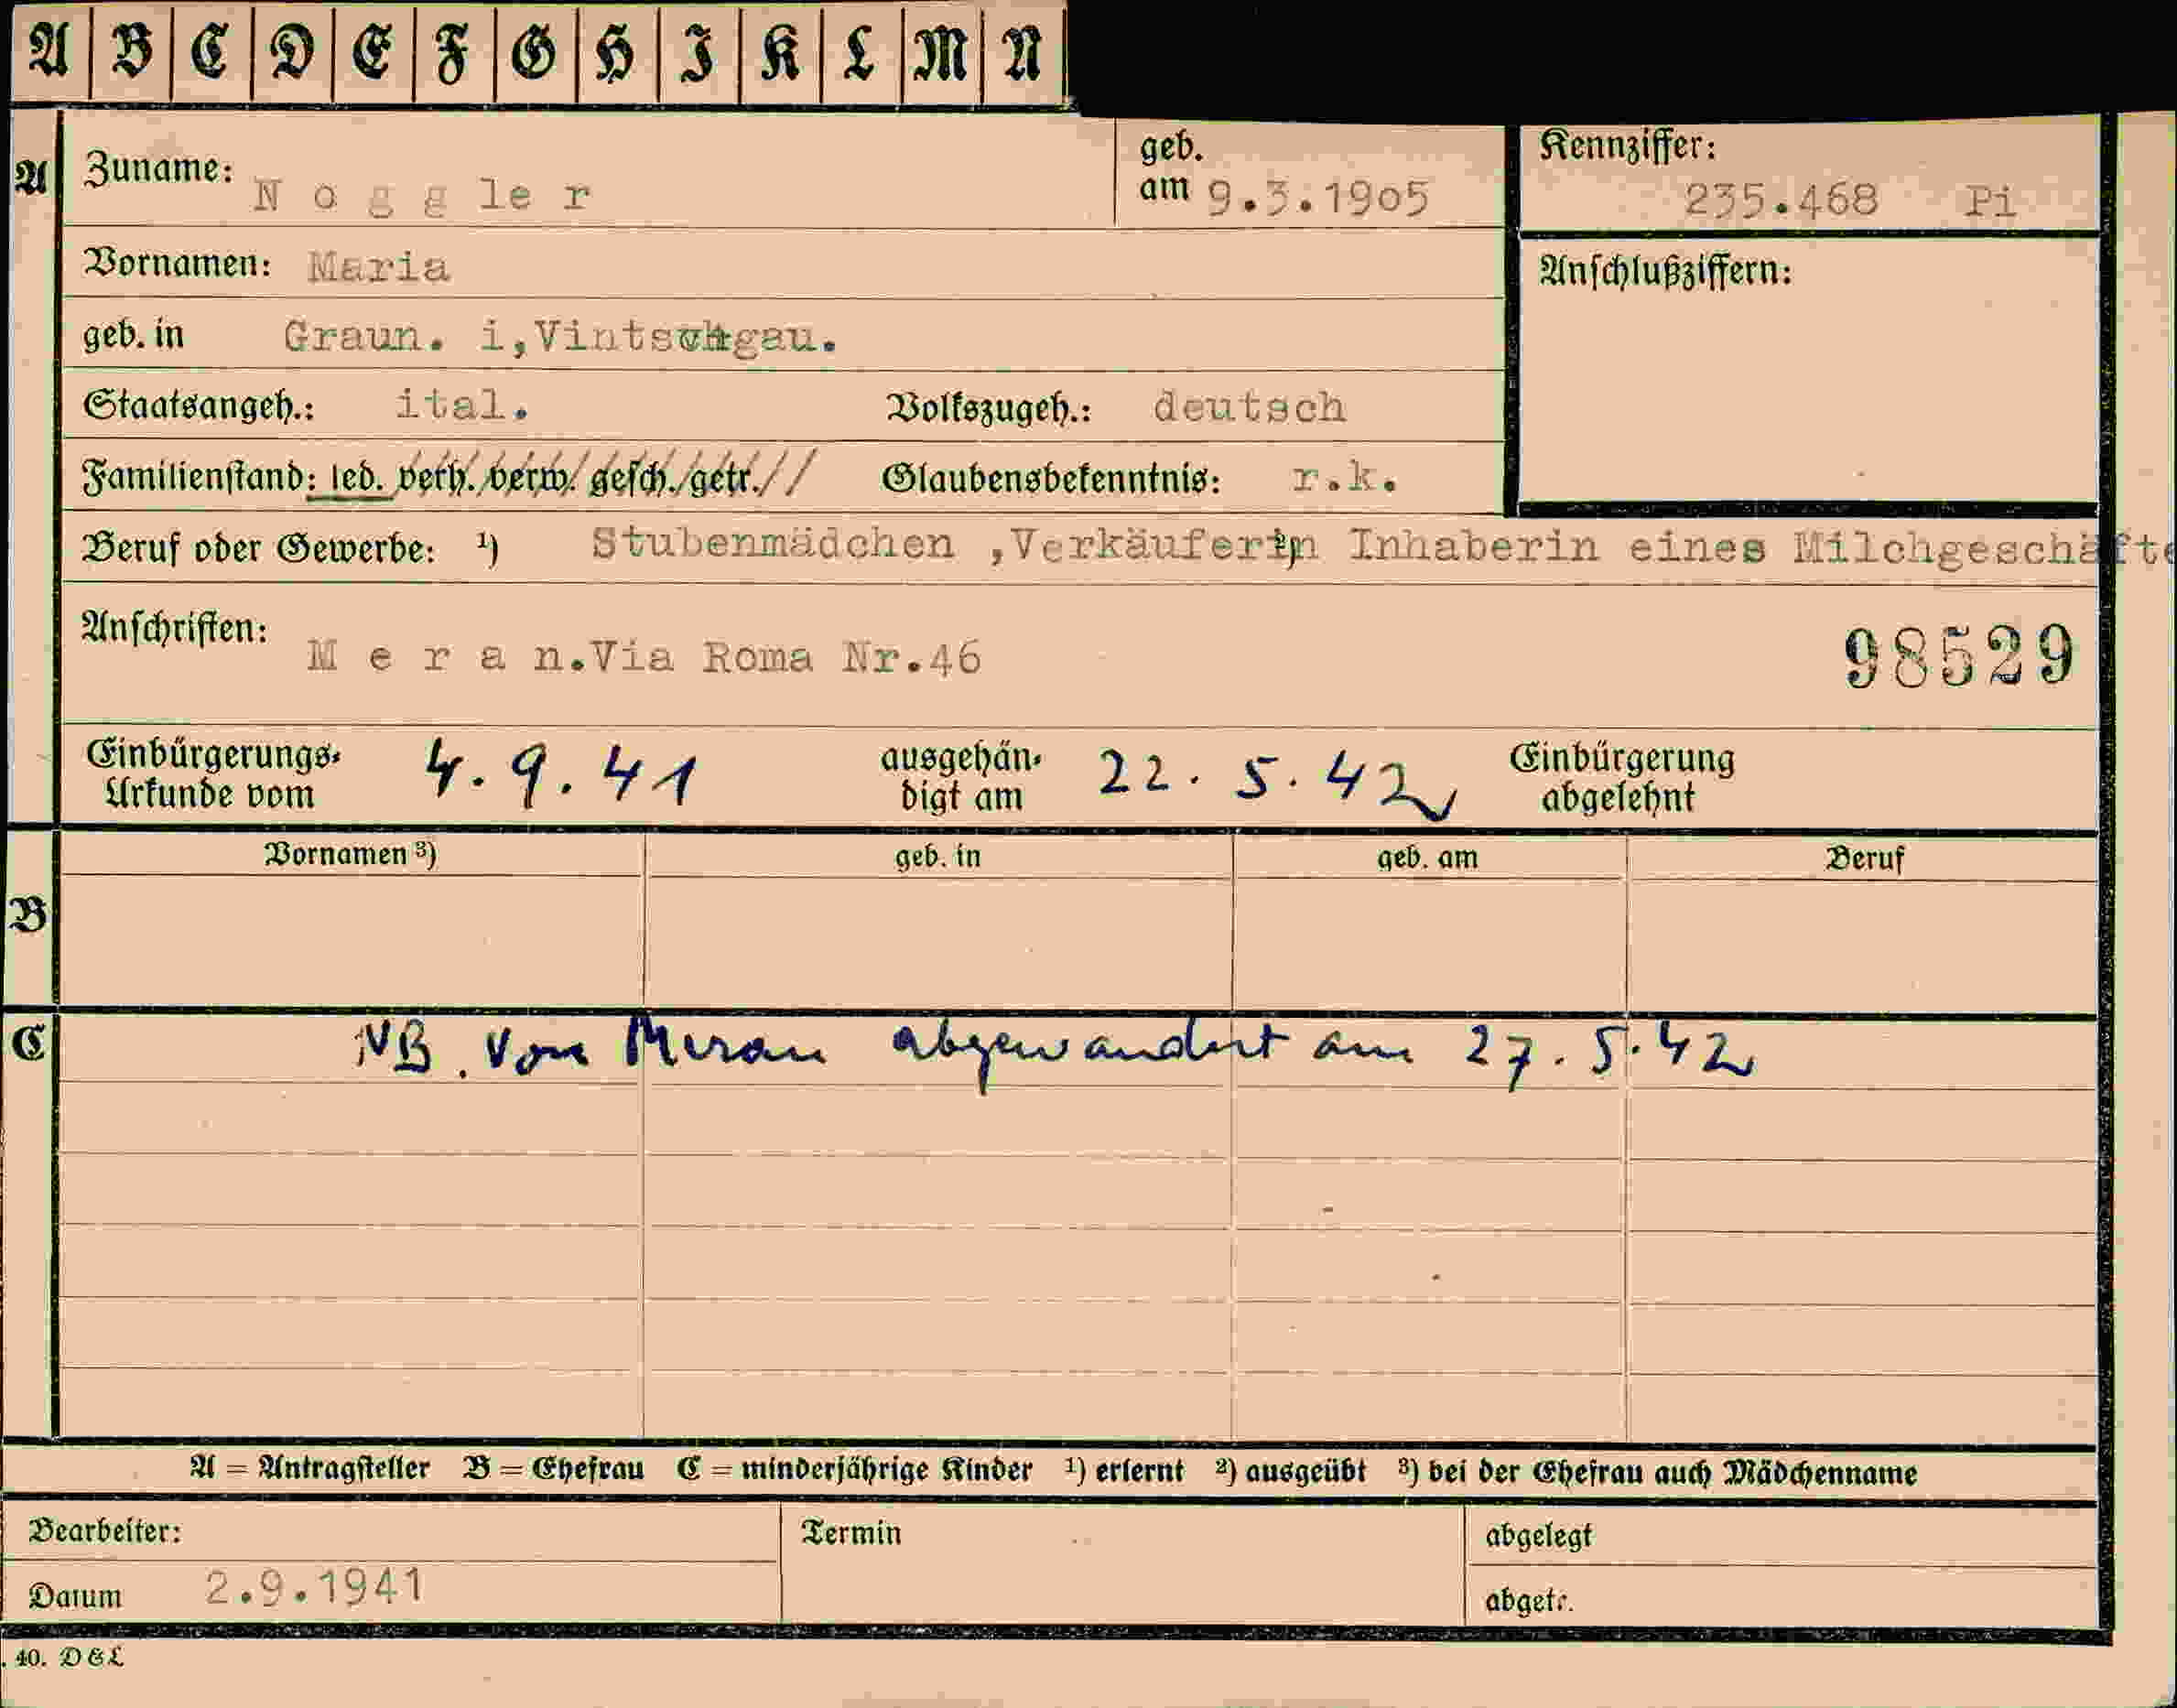 A B C D E F G H I K L M N
A Zuname: N o g g le r geb. am 9.3.1905 Kennziffer: 235.468 Pi
Vornamen: Maria Anschlußziffern:
geb. in Graun. i,Vintschgau.
Staatsangeh.: ital. Volkszugeh.: deutsch
Familienstand: led. verh. verw. gesch. getr. Glaubensbekenntnis: r.k.
Beruf oder Gewerbe: ¹) Stubenmädchen ,Verkäuferin Inhaberin eines Milchgeschäfte
Anschriften: M e r a n.Via Roma Nr.46 98529
Einbürgerungs-Urkunde vom 4.9.41 ausgehändigt am 22.5.42 Einbürgerung abgelehnt
B Vornamen ³) geb. in geb. am Beruf
C NB. Von Meran abgewandert am 27.5.42
A = Antragsteller B = Ehefrau C = minderjährige Kinder ¹) erlernt ²) ausgeübt ³) bei der Ehefrau auch Mädchenname
Bearbeiter: Termin abgelegt
Datum 2.9.1941 abgetr.
. 40. D & L